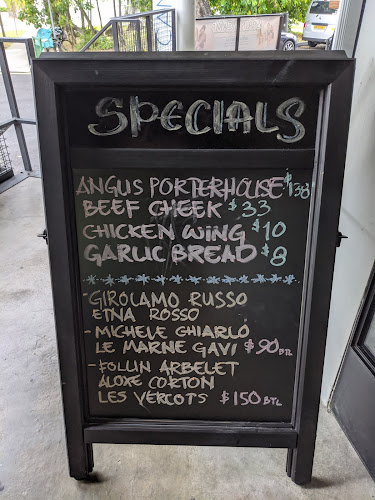 SPECIALS
ANGUS PORTERHOUSE $138
BEEF CHEEK $33
CHICKEN WING $10
GARLIC BREAD $8
- GIROLAMO RUSSO
ETNA ROSSO
- MICHELE CHIARLO
LE MARNE GAVI $90 BTL
- FOLLIN ARBELET
ALOXE CORTON
LES VERCOTS $150 BTL